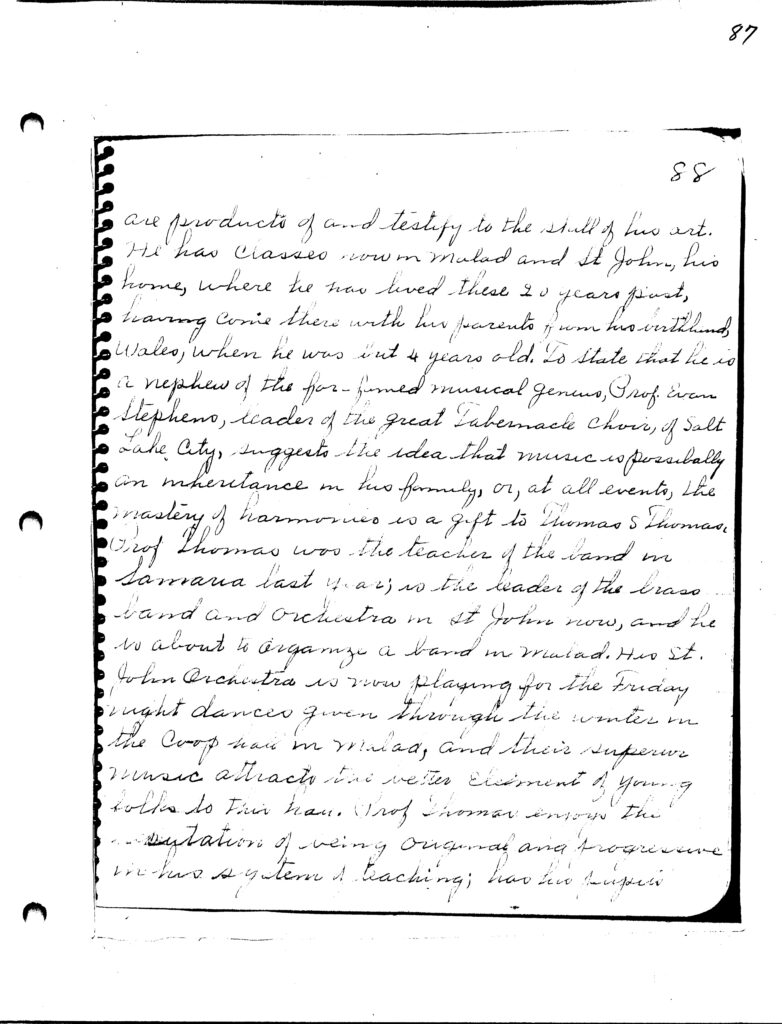 87
88
are products of and testify to the skill of his art.
He has classes now in Malad and St John, his
home, where he has lived these 20 years past,
having come there with his parents from his birthland,
Wales, when he was but 4 years old. To state that he is
a nephew of the far-famed musical genius, Prof. Evan
Stephens, leader of the great Tabernacle Choir, of Salt
Lake City, suggests the idea that music is possibally
an inheritance in his family, or, at all events, the
mastery of harmonies is a gift to Thomas S Thomas.
Prof Thomas was the teacher of the band in
Samaria last year; is the leader of the brass
band and orchestra in St John now, and he
is about to organize a band in Malad. His St.
John Orchestra is now playing for the Friday
night dances given through the winter in
the Coop hall in Malad, and their superior
music attracts the better element of young
folks to this hall. Prof Thomas enjoys the
reputation of being original and progressive
in his system of teaching; has his pupils